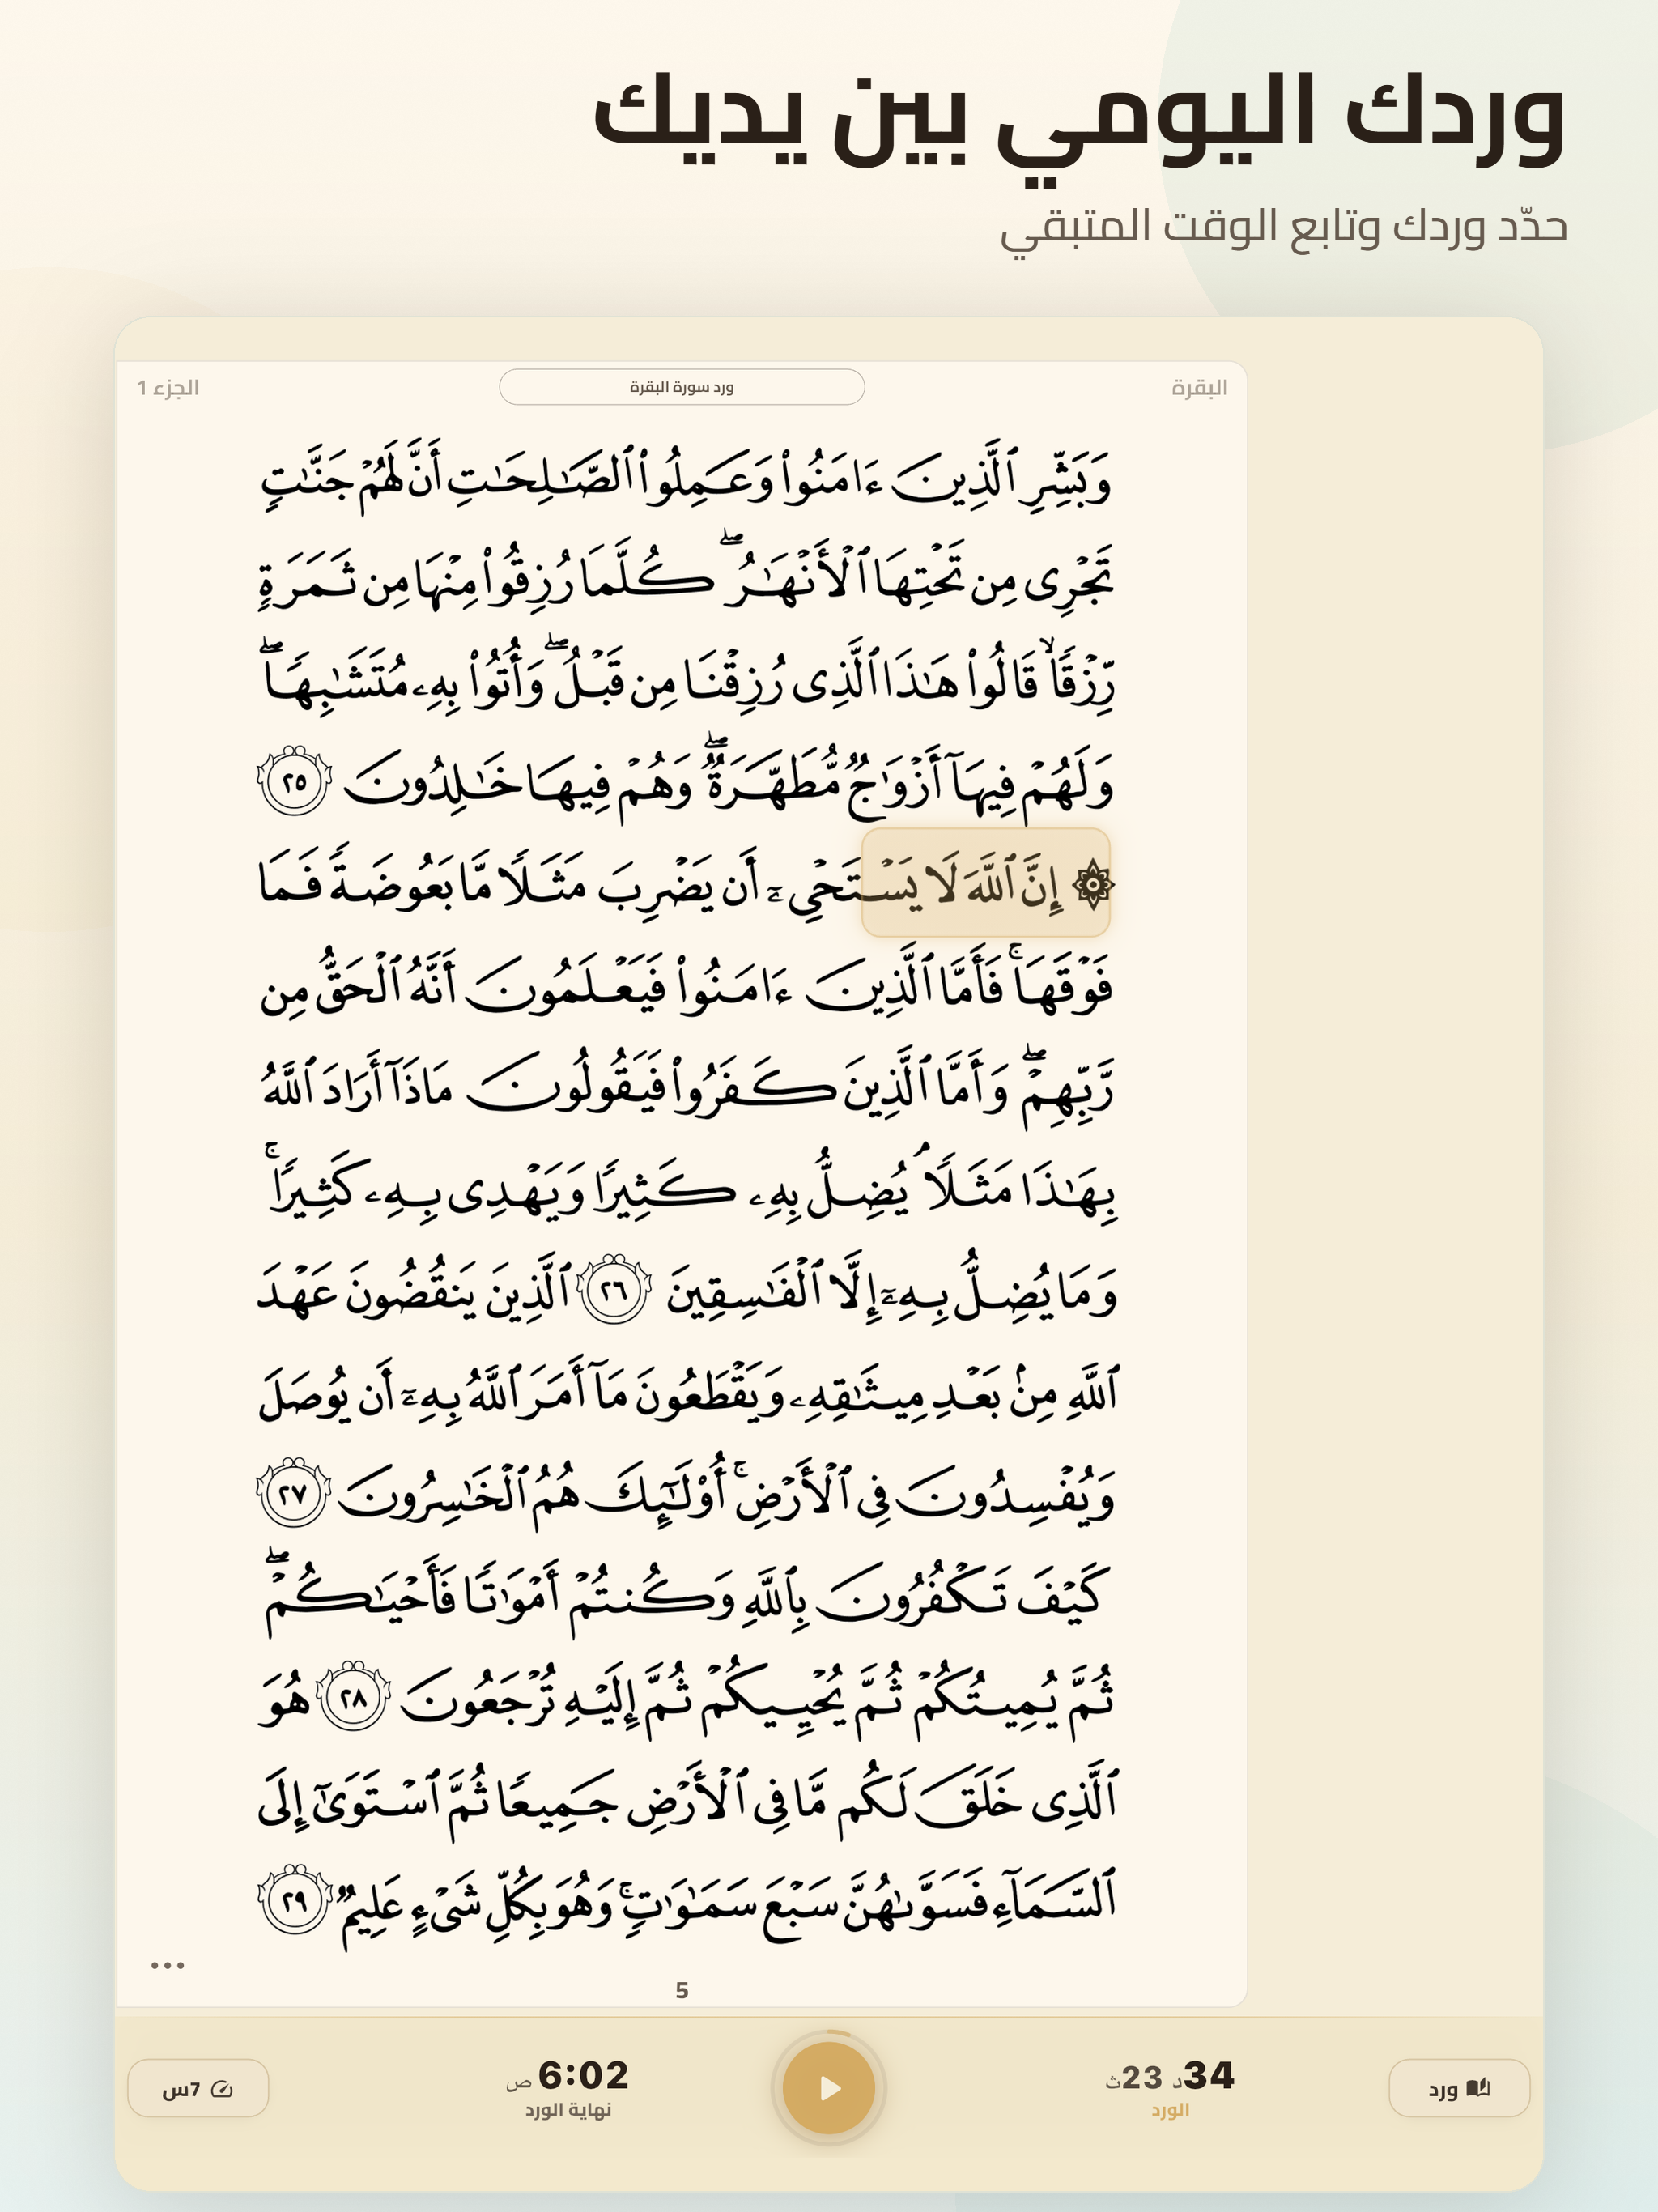 وردك اليومي بين يديك
حدّد وردك وتابع الوقت المتبقي
البقرة
ورد سورة البقرة
الجزء 1
وَبَشِّرِ ٱلَّذِينَ ءَامَنُوا۟ وَعَمِلُوا۟ ٱلصَّـٰلِحَـٰتِ أَنَّ لَهُمْ جَنَّـٰتٍ
تَجْرِى مِن تَحْتِهَا ٱلْأَنْهَـٰرُ ۖ كُلَّمَا رُزِقُوا۟ مِنْهَا مِن ثَمَرَةٍ
رِّزْقًا ۙ قَالُوا۟ هَـٰذَا ٱلَّذِى رُزِقْنَا مِن قَبْلُ ۖ وَأُتُوا۟ بِهِۦ مُتَشَـٰبِهًا ۖ
وَلَهُمْ فِيهَآ أَزْوَٰجٌ مُّطَهَّرَةٌ ۖ وَهُمْ فِيهَا خَـٰلِدُونَ ٢٥
۞ إِنَّ ٱللَّهَ لَا يَسْتَحْىِۦٓ أَن يَضْرِبَ مَثَلًا مَّا بَعُوضَةً فَمَا
فَوْقَهَا ۚ فَأَمَّا ٱلَّذِينَ ءَامَنُوا۟ فَيَعْلَمُونَ أَنَّهُ ٱلْحَقُّ مِن
رَّبِّهِمْ ۖ وَأَمَّا ٱلَّذِينَ كَفَرُوا۟ فَيَقُولُونَ مَاذَآ أَرَادَ ٱللَّهُ
بِهَـٰذَا مَثَلًا ۘ يُضِلُّ بِهِۦ كَثِيرًا وَيَهْدِى بِهِۦ كَثِيرًا ۚ
وَمَا يُضِلُّ بِهِۦٓ إِلَّا ٱلْفَـٰسِقِينَ ٢٦ ٱلَّذِينَ يَنقُضُونَ عَهْدَ
ٱللَّهِ مِنۢ بَعْدِ مِيثَـٰقِهِۦ وَيَقْطَعُونَ مَآ أَمَرَ ٱللَّهُ بِهِۦٓ أَن يُوصَلَ
وَيُفْسِدُونَ فِى ٱلْأَرْضِ ۚ أُو۟لَـٰٓئِكَ هُمُ ٱلْخَـٰسِرُونَ ٢٧
كَيْفَ تَكْفُرُونَ بِٱللَّهِ وَكُنتُمْ أَمْوَٰتًا فَأَحْيَـٰكُمْ ۖ
ثُمَّ يُمِيتُكُمْ ثُمَّ يُحْيِيكُمْ ثُمَّ إِلَيْهِ تُرْجَعُونَ ٢٨ هُوَ
ٱلَّذِى خَلَقَ لَكُم مَّا فِى ٱلْأَرْضِ جَمِيعًا ثُمَّ ٱسْتَوَىٰٓ إِلَى
ٱلسَّمَآءِ فَسَوَّىٰهُنَّ سَبْعَ سَمَـٰوَٰتٍ ۚ وَهُوَ بِكُلِّ شَىْءٍ عَلِيمٌ ٢٩
5
ورد
34د 23ث
الورد
6:02 ص
نهاية الورد
7س